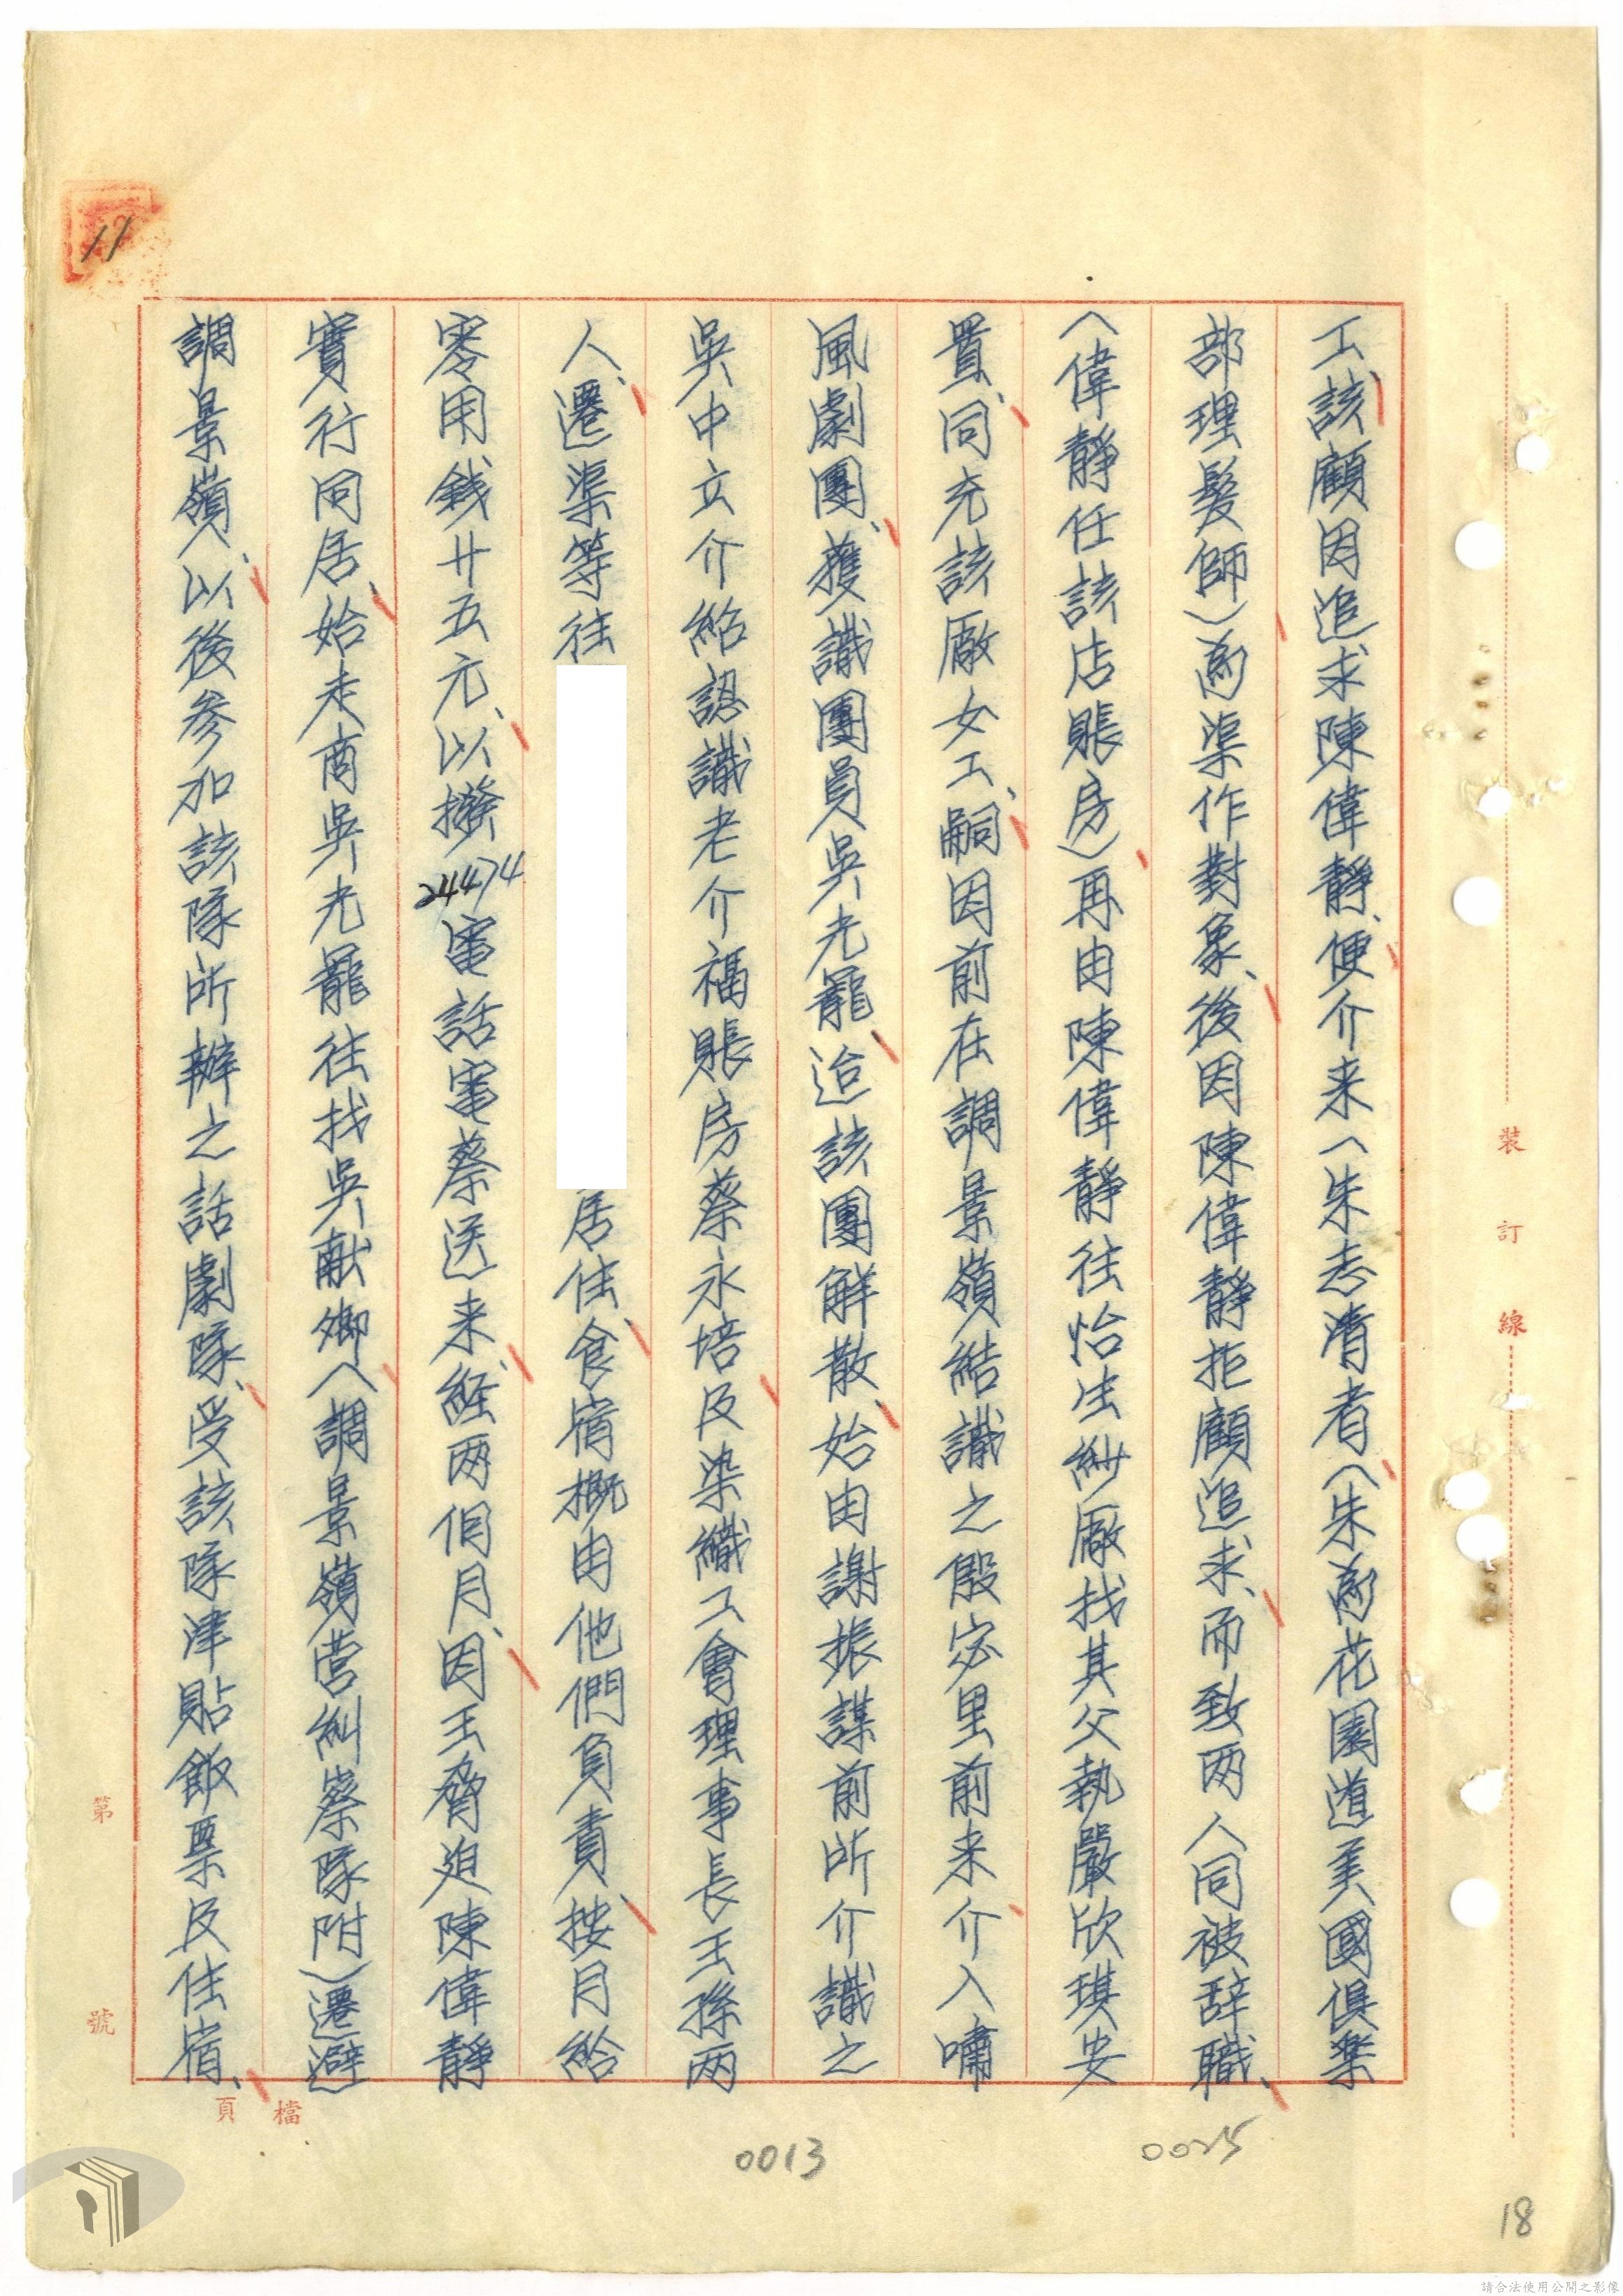 工、該顧因追求陳偉靜、便介来（朱志清者（朱為花園道美國俱樂
部理髮師）為渠作對象、後因陳偉靜拒顧追求、而致两人同被辞職、
（偉靜任該店賬房）再由陳偉靜往怡生紗廠找其父執嚴欣琪安
置、同充該廠女工、嗣因前在調景嶺結識之殷宓里前来介入嘯
風劇團、獲識團員吳光龍、迨該團解散、始由謝振謀前所介識之
吳中立介紹認識老介福賬房蔡永培及染織工會理事長王孫两
人、遷渠等往 居住、食宿概由他們負責、按月給
零用銭廿五元、以撥24474電話電蔡送来、経两個月、因王脅迫陳偉靜
實行同居、始走商吳光龍往找吳献卿（調景嶺营糾察隊附）遷避
調景嶺、以後参加該隊所辦之話劇隊、受該隊津貼飯票及住宿、
裝訂線
第 號
檔
頁
11
0013
0025
18
請合法使用公開之影像